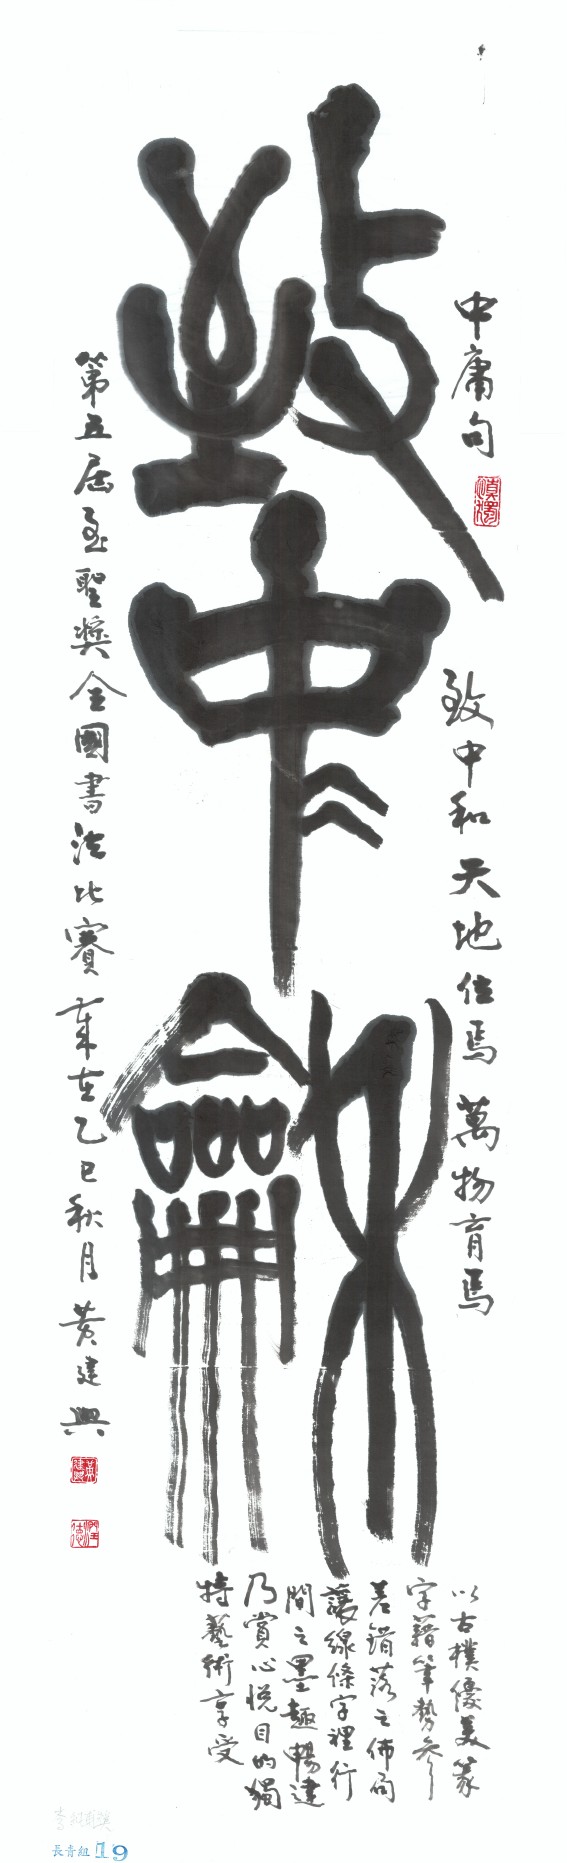 致中龢
中庸句
慎獨
致中和天地位焉萬物育焉
以古樸優美篆
字藉筆勢參
差錯落之佈局
讓線條字裡行
間之墨趣暢達
乃賞心悅目的獨
特藝術享受
第五屆至聖獎全國書法比賽 歲在乙巳秋月 黃建興
長青組 19